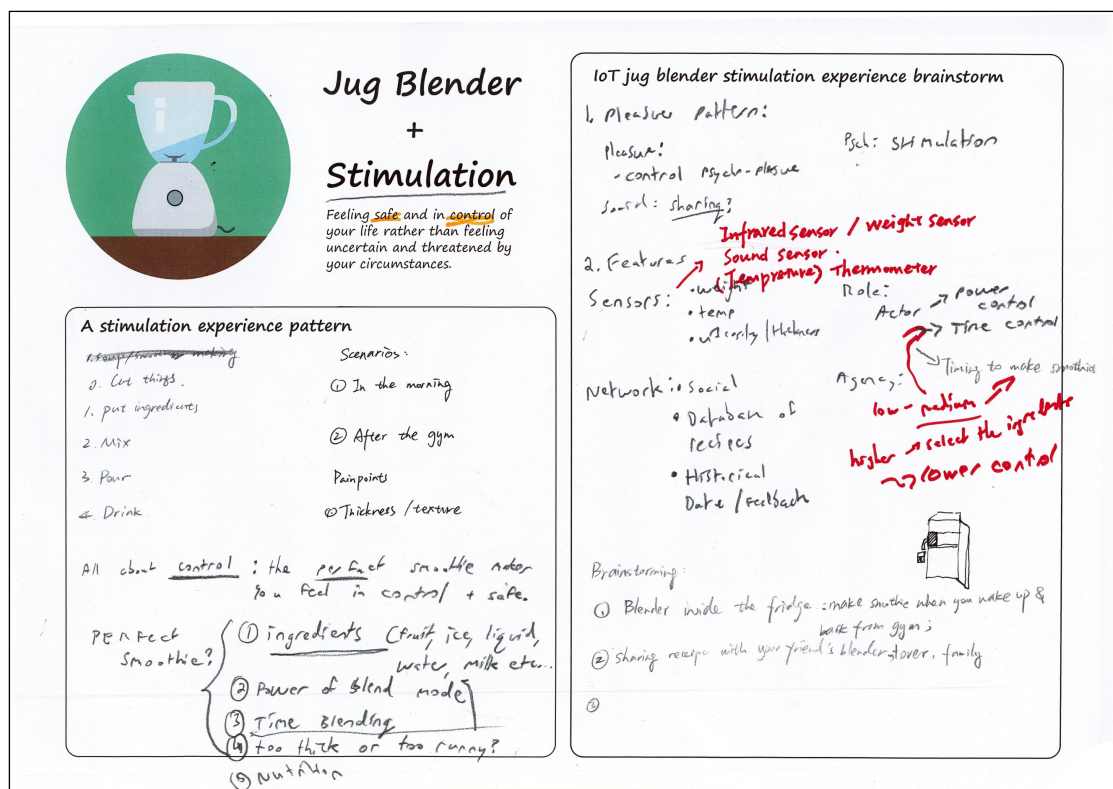 Jug Blender
+
Stimulation
Feeling safe and in control of
your life rather than feeling
uncertain and threatened by
your circumstances.
A stimulation experience pattern
0. Cut things.
1. put ingredients
2. Mix
3. Pour
4. Drink
Scenarios:
① In the morning
② After the gym
Painpoints
① Thickness / texture
All about control : the perfect smoothie makes
you feel in control + safe.
Perfect
smoothie?
① ingredients (fruit, ice, liquid,
water, milk etc...
② Power of blend mode
③ Time Blending
④ too thick or too runny?
⑤ Nutrition
IoT jug blender stimulation experience brainstorm
1. Pleasure Pattern:
Pleasure:
- control
Psych: Stimulation
Social: sharing?
Infrared sensor / weight sensor
Sound sensor.
(Temprature) Thermometer
2. Features
Sensors:
• weight
• temp
• / thickness
Role:
Actor → Power control
→ Time control
Timing to make smoothies
Agency:
low - medium
higher → select the ingredients
→ lower control
Network: • Social
• Databan of
recipes
• Historical
Date / Feedback
Brainstorming:
① Blender inside the fridge : make smothie when you wake up &
back from gym;
② Sharing receipe with your friend's blender, lover, family
③